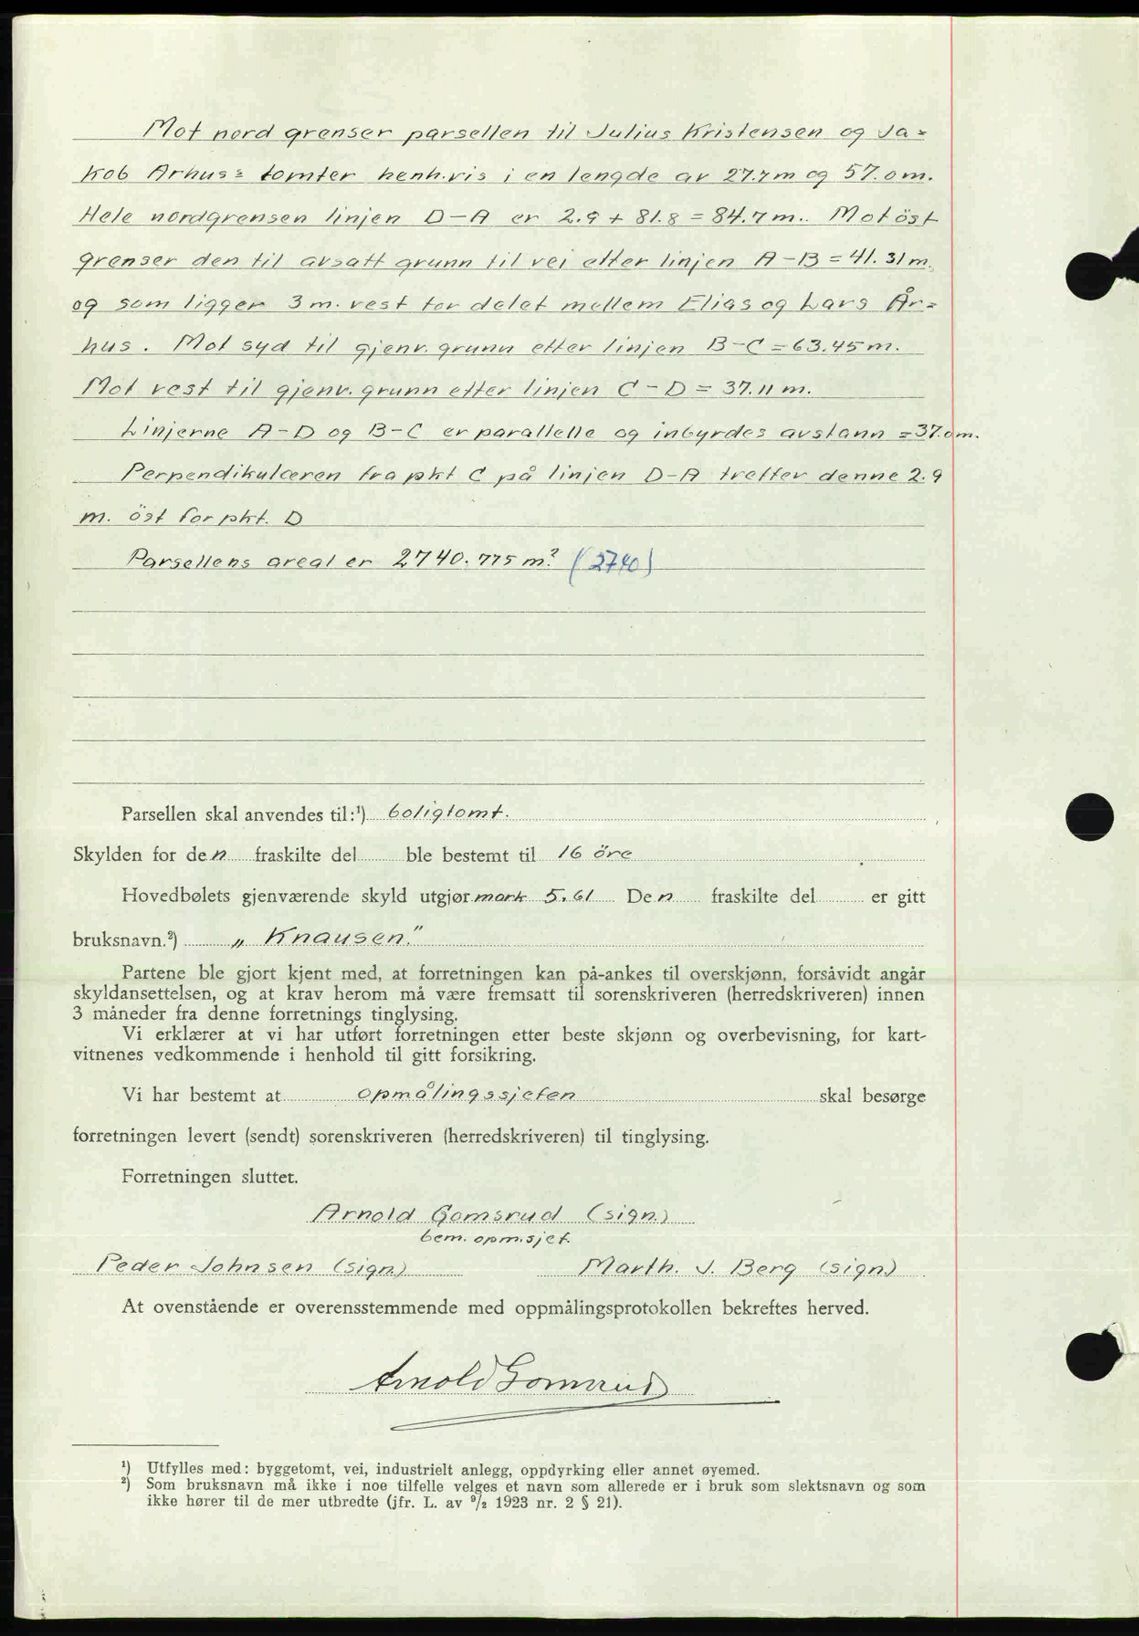 Mot nord grenser parsellen til Julius Kristensen og Ja=
kob Århus's tomter henh.vis i en lengde av 27.7 m og 57.0 m.
Hele nordgrensen linjen D-A er 2.9 + 81.8 = 84.7 m. Mot öst
grenser den til avsatt grunn til vei etter linjen A-B = 41.31 m.
og som ligger 3 m. vest for delet mellem Elias og Lars År=
hus. Mot syd til gjenv. grunn etter linjen B-C = 63.45 m.
Mot vest til gjenv. grunn etter linjen C-D = 37.11 m.
Linjerne A-D og B-C er parallelle og inbyrdes avstann = 37.0 m.
Perpendikulæren fra pkt C på linjen D-A treffer denne 2.9
m. öst for pkt. D
Parsellens areal er 2740.775 m² (2740)
Parsellen skal anvendes til:¹) boligtomt.
Skylden for den fraskilte del ble bestemt til 16 öre
Hovedbølets gjenværende skyld utgjør mark 5.61 Den fraskilte del er gitt
bruksnavn.²) „Knausen."
Partene ble gjort kjent med, at forretningen kan på-ankes til overskjønn, forsåvidt angår
skyldansettelsen, og at krav herom må være fremsatt til sorenskriveren (herredskriveren) innen
3 måneder fra denne forretnings tinglysing.
Vi erklærer at vi har utført forretningen etter beste skjønn og overbevisning, for kart-
vitnenes vedkommende i henhold til gitt forsikring.
Vi har bestemt at opmålingssjefen skal besørge
forretningen levert (sendt) sorenskriveren (herredskriveren) til tinglysing.
Forretningen sluttet.
Arnold Gomsrud (sign.)
bem. opm.sjef.
Peder Johnsen (sign.) Marth. J. Berg (sign)
At ovenstående er overensstemmende med oppmålingsprotokollen bekreftes herved.
Arnold Gomsrud
¹) Utfylles med: byggetomt, vei, industrielt anlegg, oppdyrking eller annet øyemed.
²) Som bruksnavn må ikke i noe tilfelle velges et navn som allerede er i bruk som slektsnavn og som
ikke hører til de mer utbredte (jfr. L. av ⁹/₂ 1923 nr. 2 § 21).